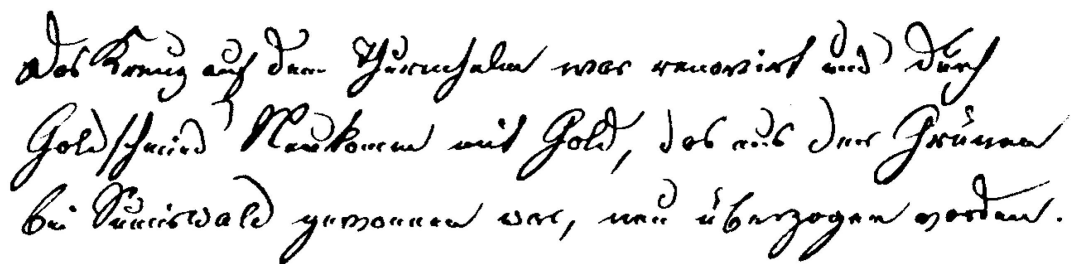 Das Kreuz auf dem Thurmhelm war renovirt und durch
Goldschmied Neukomm mit Gold, das aus der Grünen
bei Sumiswald gewonnen war, neu überzogen worden.